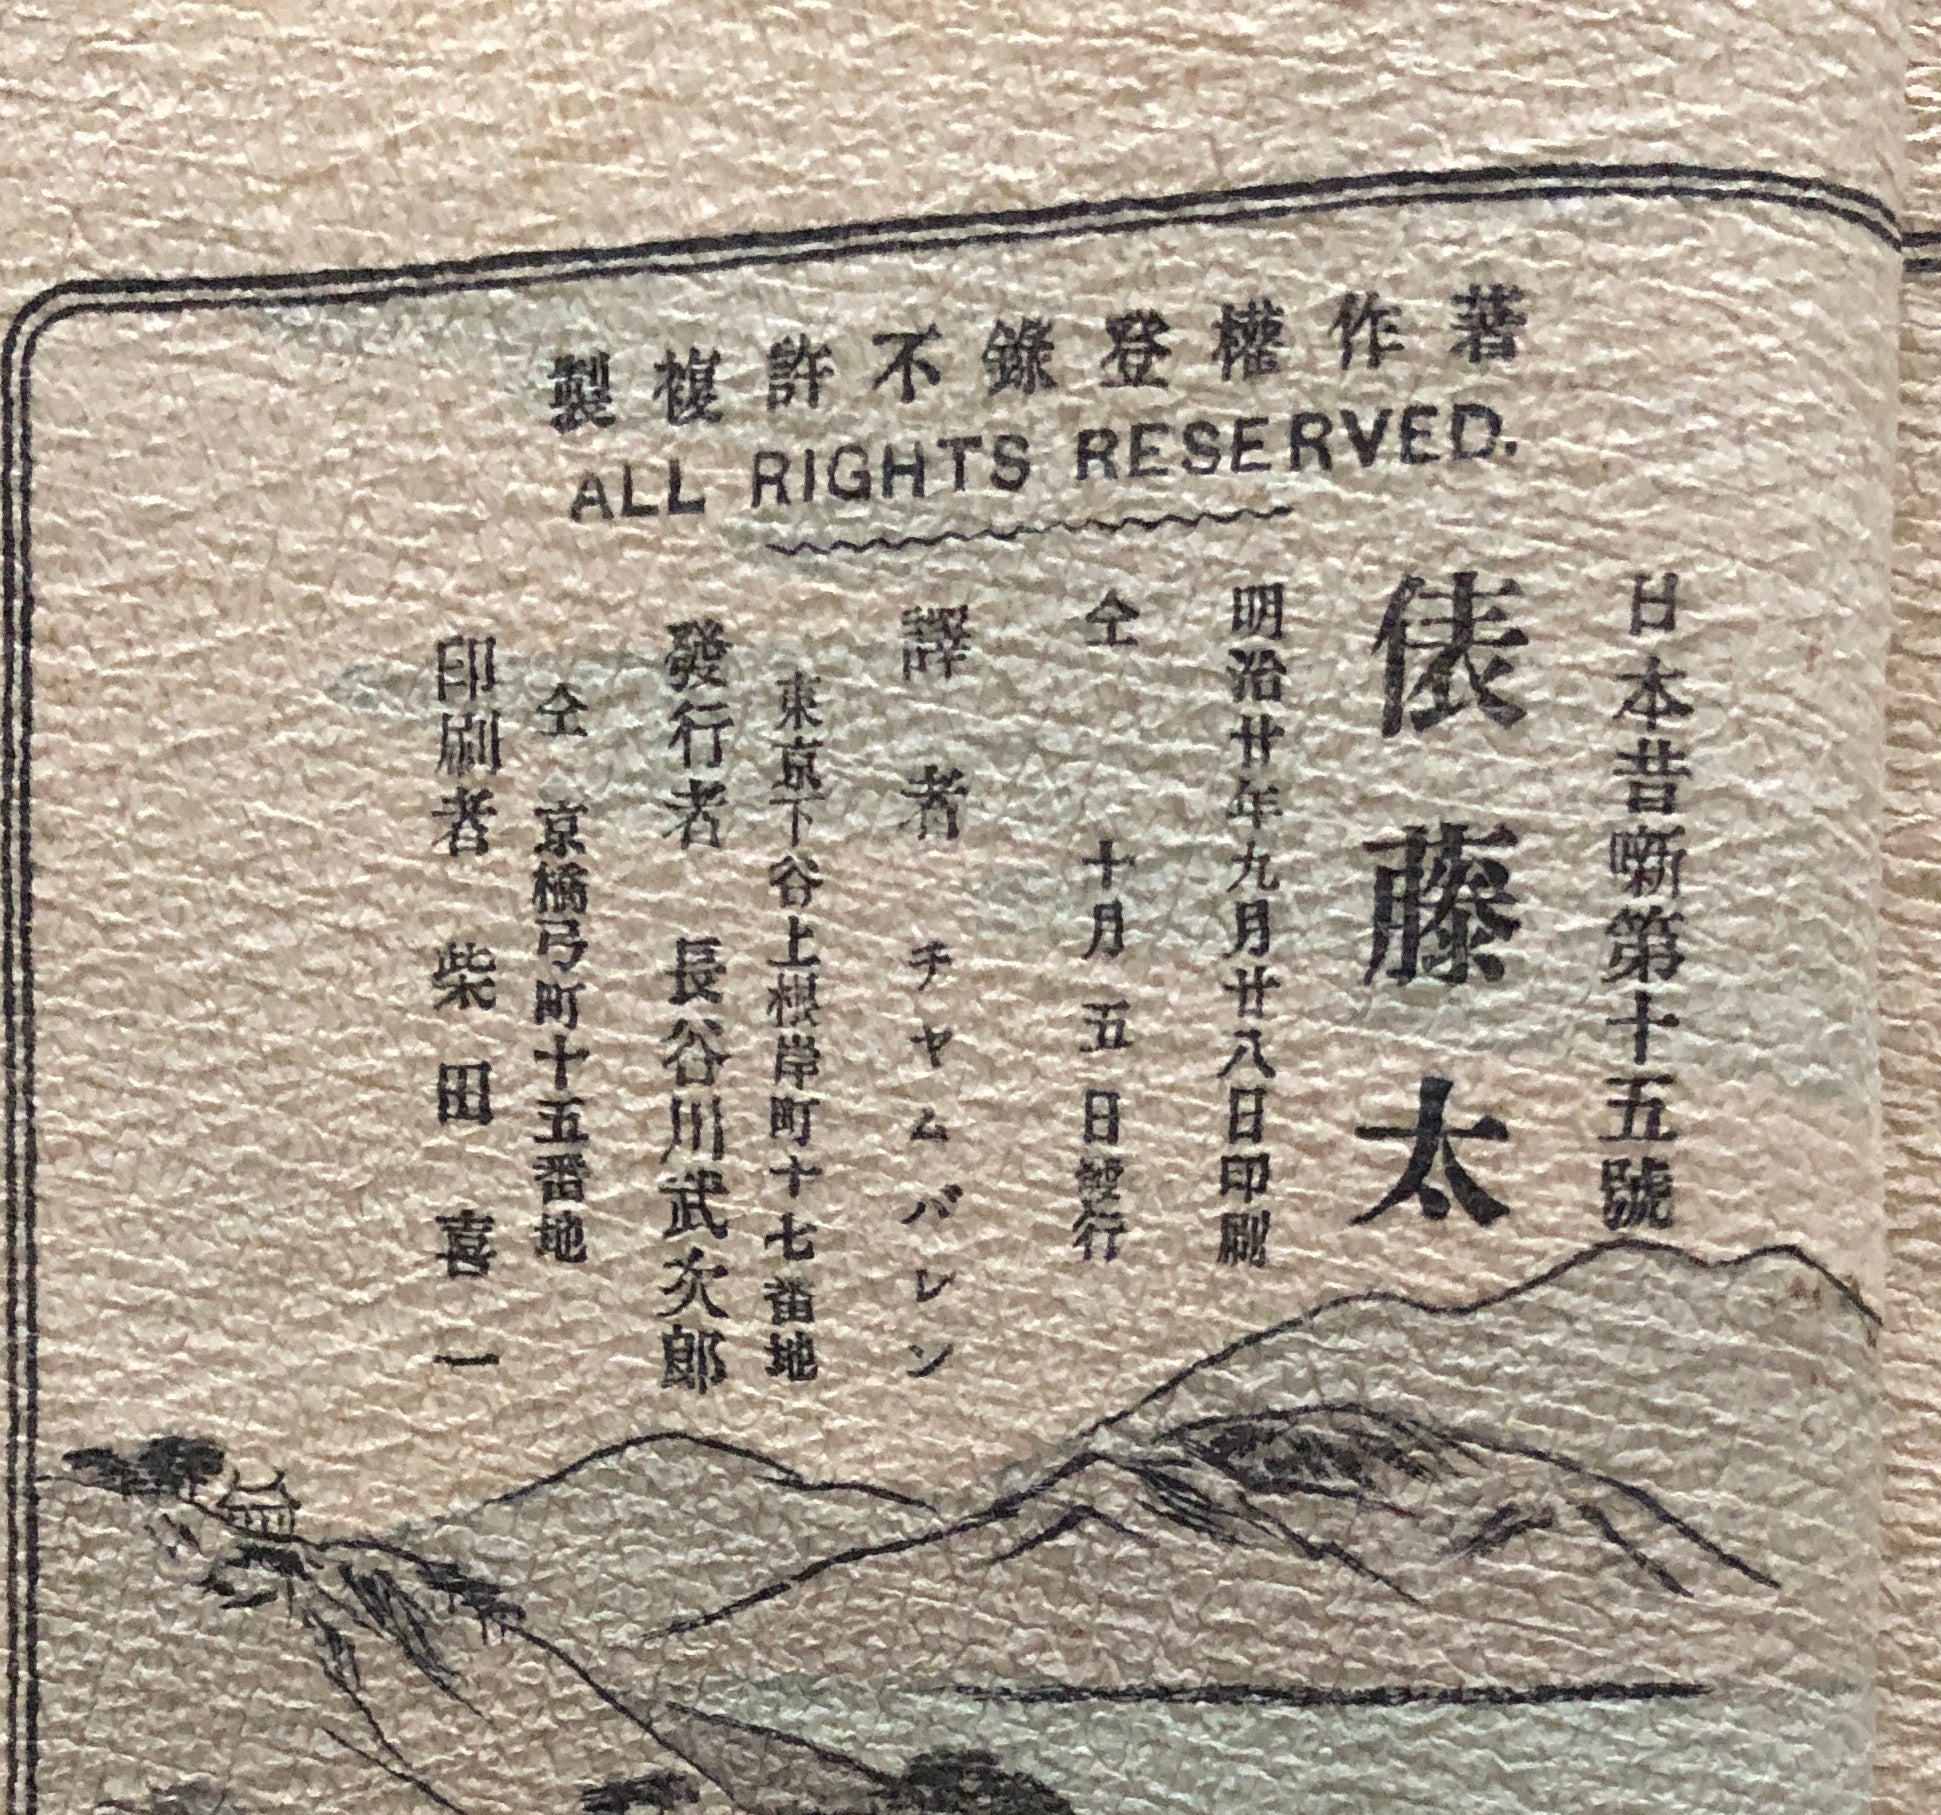 著作權登錄不許複製
ALL RIGHTS RESERVED.
日本昔噺第十五號
俵藤太
明治廿年九月廿八日印刷
仝 十月五日發行
譯者 チャムバレン
東京下谷上根岸町十七番地
發行者 長谷川武次郎
仝 京橋弓町十五番地
印刷者 柴田喜一